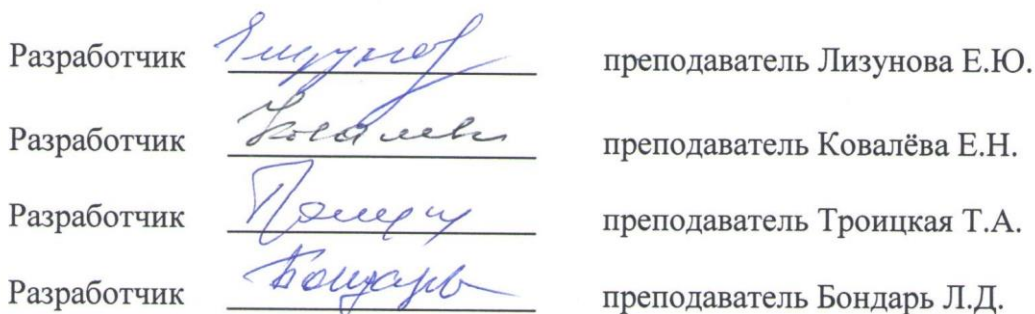 Разработчик преподаватель Лизунова Е.Ю.
Разработчик преподаватель Ковалёва Е.Н.
Разработчик преподаватель Троицкая Т.А.
Разработчик Бондарь преподаватель Бондарь Л.Д.